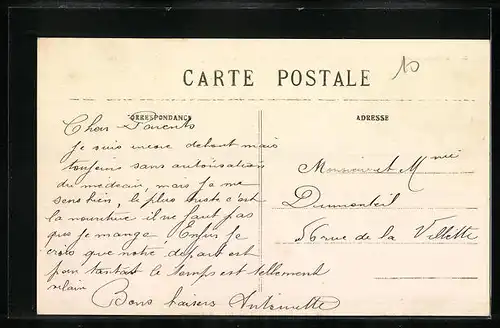 10
CARTE POSTALE
CORRESPONDANCE
ADRESSE
Chers Parents
Je suis encore debout mais
toujours sans autorisation
du médecin, mais je me
sens bien, le plus triste c'est
la nourriture il ne faut pas
que je mange. Enfin je
crois que notre départ est
pour tantôt le temps est tellement
vilain
Bons baisers Antoinette
Monsieur et Mme
Dumonteil
56 rue de la Villette